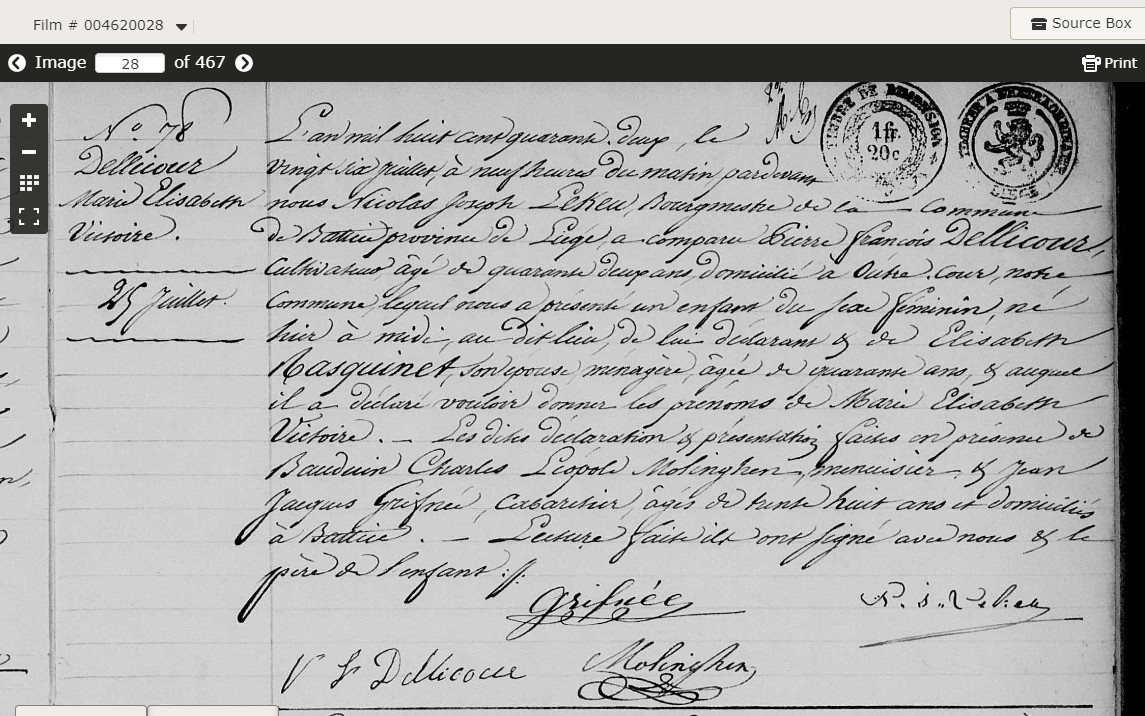 Film # 004620028
Source Box
Image 28 of 467
Print
N° 78
Dellicour
Marie Elisabeth
Victoire.
25 Juillet.
L'an mil huit cent quarante deux, le
vingt six juillet, à neuf heures du matin, pardevant
nous Nicolas Joseph Lekeu, Bourgmestre de la Commune
de Battice province de Liége, a comparu Pierre François Dellicour,
Cultivateur, âgé de quarante deux ans, domicilié à Outre-Cour, notre
Commune, lequel nous a présenté un enfant du sexe féminin, né
hier à midi, au dit lieu, de lui déclarant & de Elisabeth
Rasquinet, son épouse, ménagère, âgée de quarante ans, & auquel
il a déclaré vouloir donner les prénoms de Marie Elisabeth
Victoire. — Les dites déclaration & présentation faites en présence de
Bauduin Charles Léopold Molinghen, menuisier & Jean
Jacques Grifnée, Cabaretier, âgés de trente huit ans et domiciliés
à Battice. — Lecture faite ils ont signé avec nous & le
père de l'enfant :/.
TIMBRE DE DIMENSION
1 fr.
20 c
Grifnée
N. J. Lekeu
P F Dellicour
Molinghen